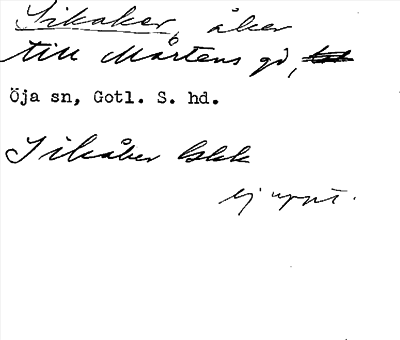 Sikaker, åker
till Mårtens gd,
Öja sn, Gotl. S. hd.
Sikåker blkk
ej uppt.